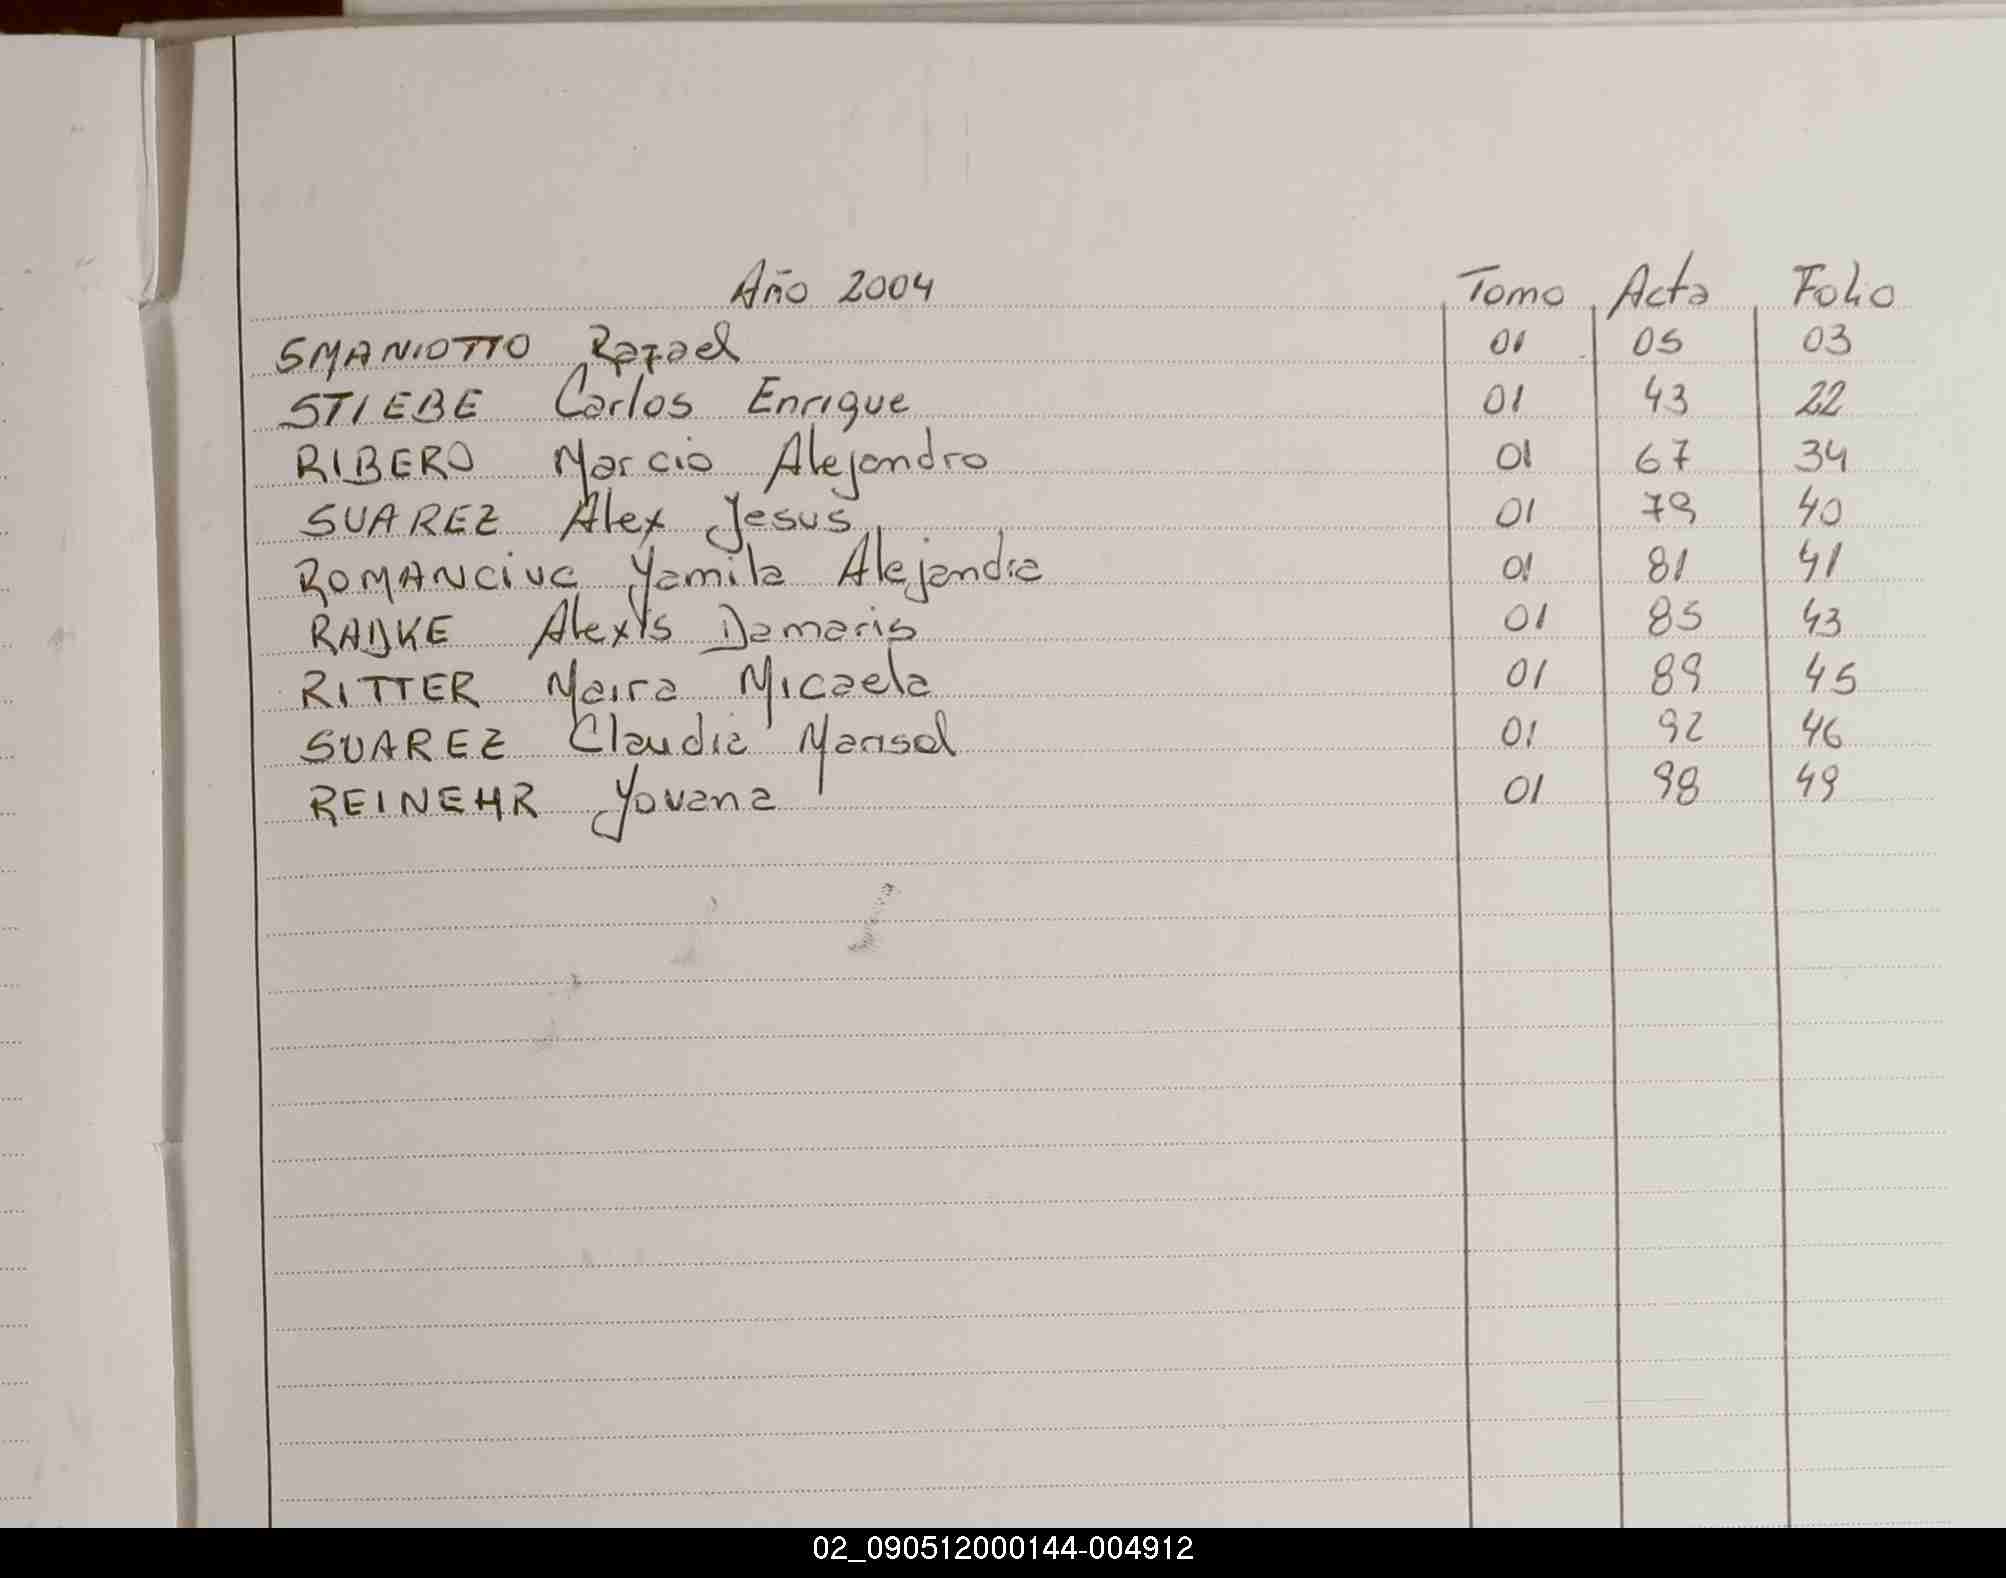 Año 2004 Tomo Acta Folio
SMANIOTTO Rafael 01 05 03
STIEBE Carlos Enrique 01 43 22
RIBERO Marcio Alejandro 01 67 34
SUAREZ Alex Jesus 01 79 40
ROMANCIUC Yamila Alejandra 01 81 41
RADKE Alexis Damaris 01 85 43
RITTER Maira Micaela 01 89 45
SUAREZ Claudia Marisol 01 92 46
REINEHR Yovana 01 98 49
02_090512000144-004912